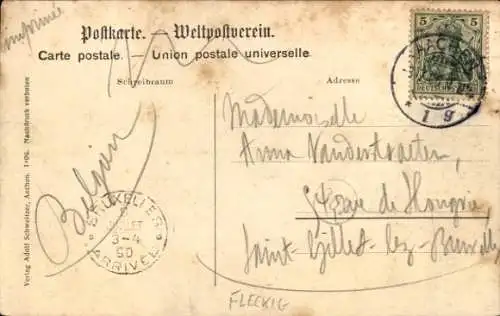 imprimée
Postkarte. — Weltpostverein.
Carte postale. — Union postale universelle
Schreibraum
Adresse
5 5
DEUTSCHES
AACHEN
* 1 g
Mademoiselle
Anna Vanderstraeten
de Hongrie
Saint-Gilles-lez-Bruxelles
Belgien
BRUXELLES
ARRIVEE
FLECKIG
Verlag Adolf Schweitzer, Aachen. Nachdruck verboten